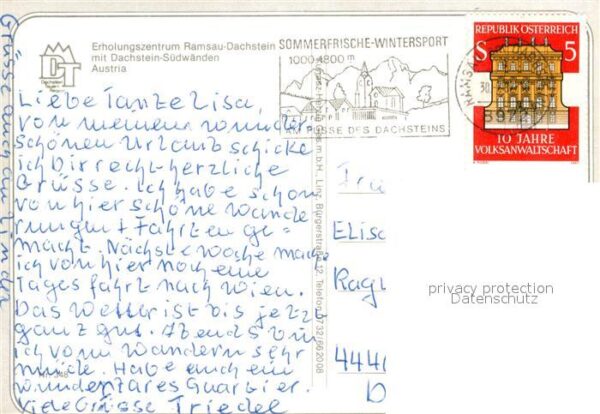 Erholungszentrum Ramsau-Dachstein
mit Dachstein-Südwänden
Austria
SOMMERFRISCHE-WINTERSPORT
1000-1800 m
FUSSE DES DACHSTEINS
REPUBLIK ÖSTERREICH
S 5
10 JAHRE
VOLKSANWALTSCHAFT
Liebe Tante Lisa,
von meinem wunder
schönen Urlaub schicke
ich Dir recht herzliche
Grüsse. Ich habe schon
von hier schöne Wande
rungen + Fahrten ge=
macht. Nächste Woche mache
ich von hier noch eine
Tagesfahrt nach Wien.
Das Wetter ist bis jetzt
ganz gut. Abends bin
ich vom Wandern sehr
müde. Habe auch ein
wunderbares Quartier.
Viele Grüsse Friedel
Grüsse auch an Linda
Linz, Bürgerstraße 12, Telefon 0732/662008
Elisa
Ragu
444
D
privacy protection
Datenschutz